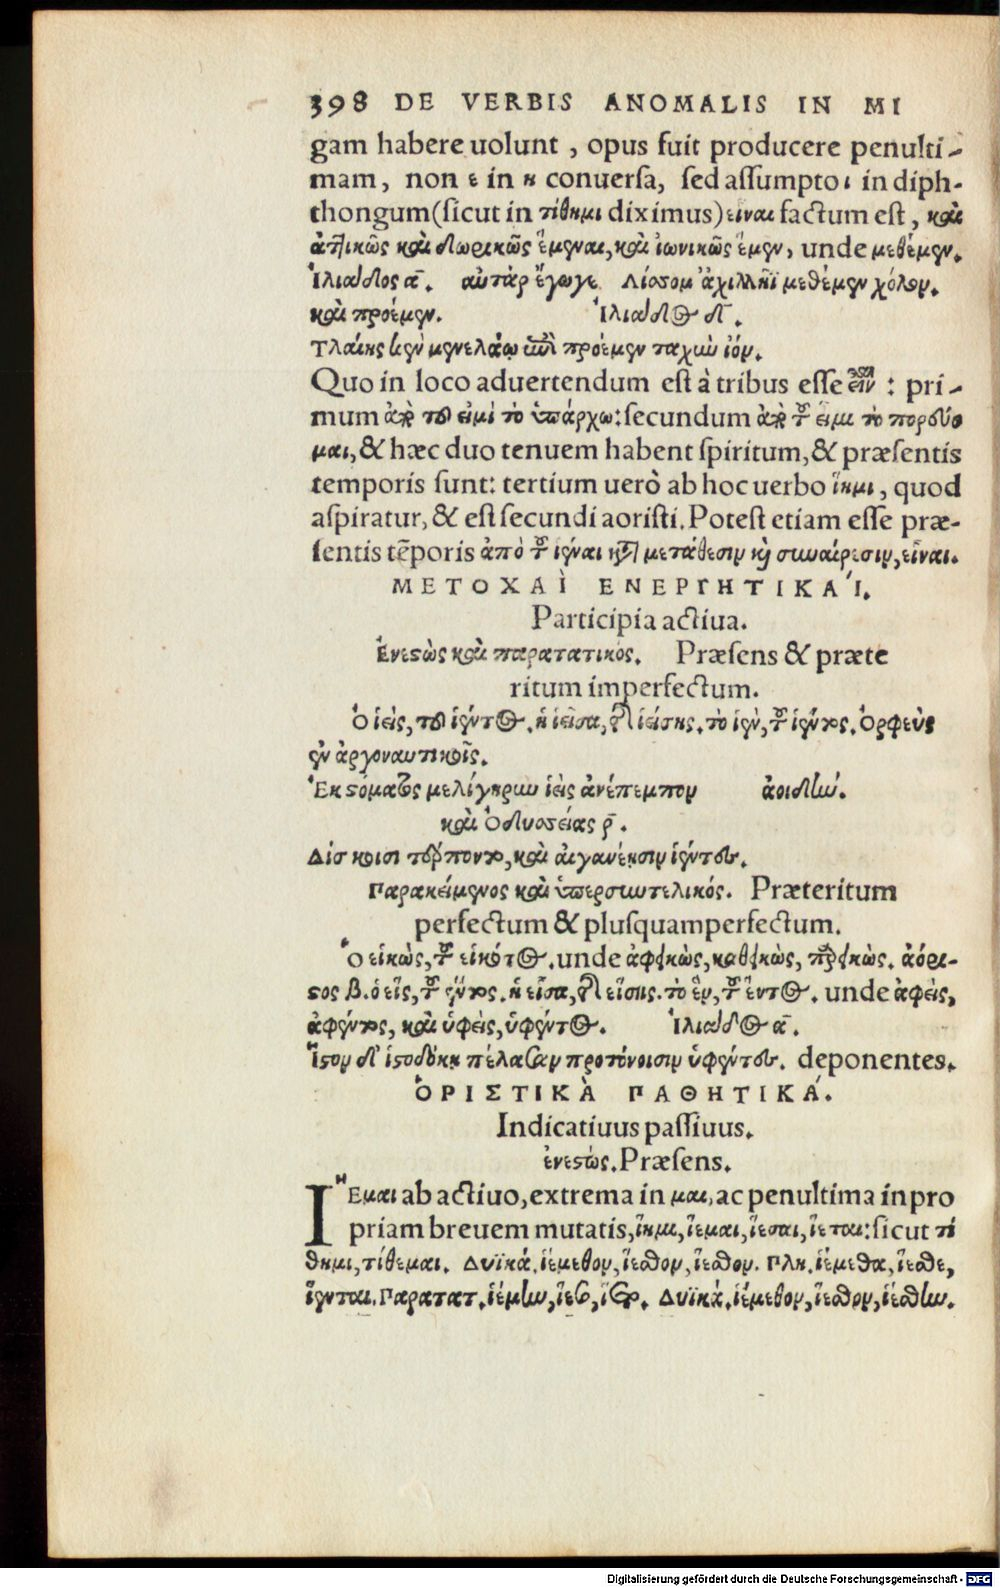 398 DE VERBIS ANOMALIS IN MI
gam habere uolunt, opus fuit producere penulti-
mam, non ε in η conuersa, sed assumpto ι in diph-
thongum (sicut in τίθημι diximus) εἶναι factum est, καὶ
ἀττικῶς καὶ δωρικῶς ἕμεναι, καὶ ἰωνικῶς ἕμεν, unde μεθέμεν.
Ἰλιάδος α̅. αὐτὰρ ἔγωγε Λίσσομ' ἀχιλλῆϊ μεθέμεν χόλον.
καὶ προέμεν. Ἰλιάδος δ̅.
Τλαίης κεν μενελάῳ ἐπὶ προέμεν ταχὺν ἰόν.
Quo in loco aduertendum est à tribus esse εἶναι: pri-
mum ἀπὸ τοῦ εἰμὶ τὸ ὑπάρχω: secundum ἀπὸ τοῦ εἶμι τὸ πορεύο
μαι, & hæc duo tenuem habent spiritum, & præsentis
temporis sunt: tertium uerò ab hoc uerbo ἵημι, quod
aspiratur, & est secundi aoristi. Potest etiam esse præ-
sentis tẽporis ἀπὸ τοῦ ἰέναι κατὰ μετάθεσιν καὶ συναίρεσιν, εἶναι.
ΜΕΤΟΧΑῚ ΕΝΕΡΓΗΤΙΚΑΊ.
Participia actiua.
Ἐνεστὼς καὶ παρατατικός. Præsens & præte
ritum imperfectum.
Ὁ ἱεὶς, τοῦ ἱέντος. ἡ ἱεῖσα, τῆς ἱείσης. τὸ ἱὲν, τοῦ ἱέντος. Ὀρφεὺς
ἐν ἀργοναυτικοῖς.
Ἐκ στόματος μελίγηρυν ἱεὶς ἀνέπεμπον ἀοιδήν.
καὶ Ὀδυσσείας ρ̅.
Δίσκοισι τέρποντο, καὶ αἰγανέῃσιν ἱέντες.
Παρακείμενος καὶ ὑπερσυντελικός. Præteritum
perfectum & plusquamperfectum.
Ὁ εἱκὼς, τοῦ εἱκότος. unde ἀφεικὼς, καθεικὼς, παρεικὼς. ἀόρι-
στος β. ὁ εἷς, τοῦ ἕντος. ἡ εἷσα, τῆς εἵσης. τὸ ἓν, τοῦ ἕντος. unde ἀφεὶς,
ἀφέντος, καὶ ὑφεὶς, ὑφέντος. Ἰλιάδος α̅.
Ἱστὸν δ' ἱστοδόκῃ πέλασαν προτόνοισιν ὑφέντες. deponentes.
ὉΡΙΣΤΙΚᾺ ΠΑΘΗΤΙΚΆ.
Indicatiuus passiuus.
ἐνεστώς. Præsens.
ἽΕμαι ab actiuo, extrema in μαι, ac penultima in pro
priam breuem mutatis, ἵημι, ἵεμαι, ἵεσαι, ἵεται: sicut τί
θημι, τίθεμαι. Δυϊκά. ἱέμεθον, ἵεσθον, ἵεσθον. Πλη. ἱέμεθα, ἵεσθε,
ἵενται. Παρατατ. ἱέμην, ἵεσο, ἵετο. Δυϊκά. ἱέμεθον, ἵεσθον, ἱέσθην.
Digitalisierung gefördert durch die Deutsche Forschungsgemeinschaft - DFG